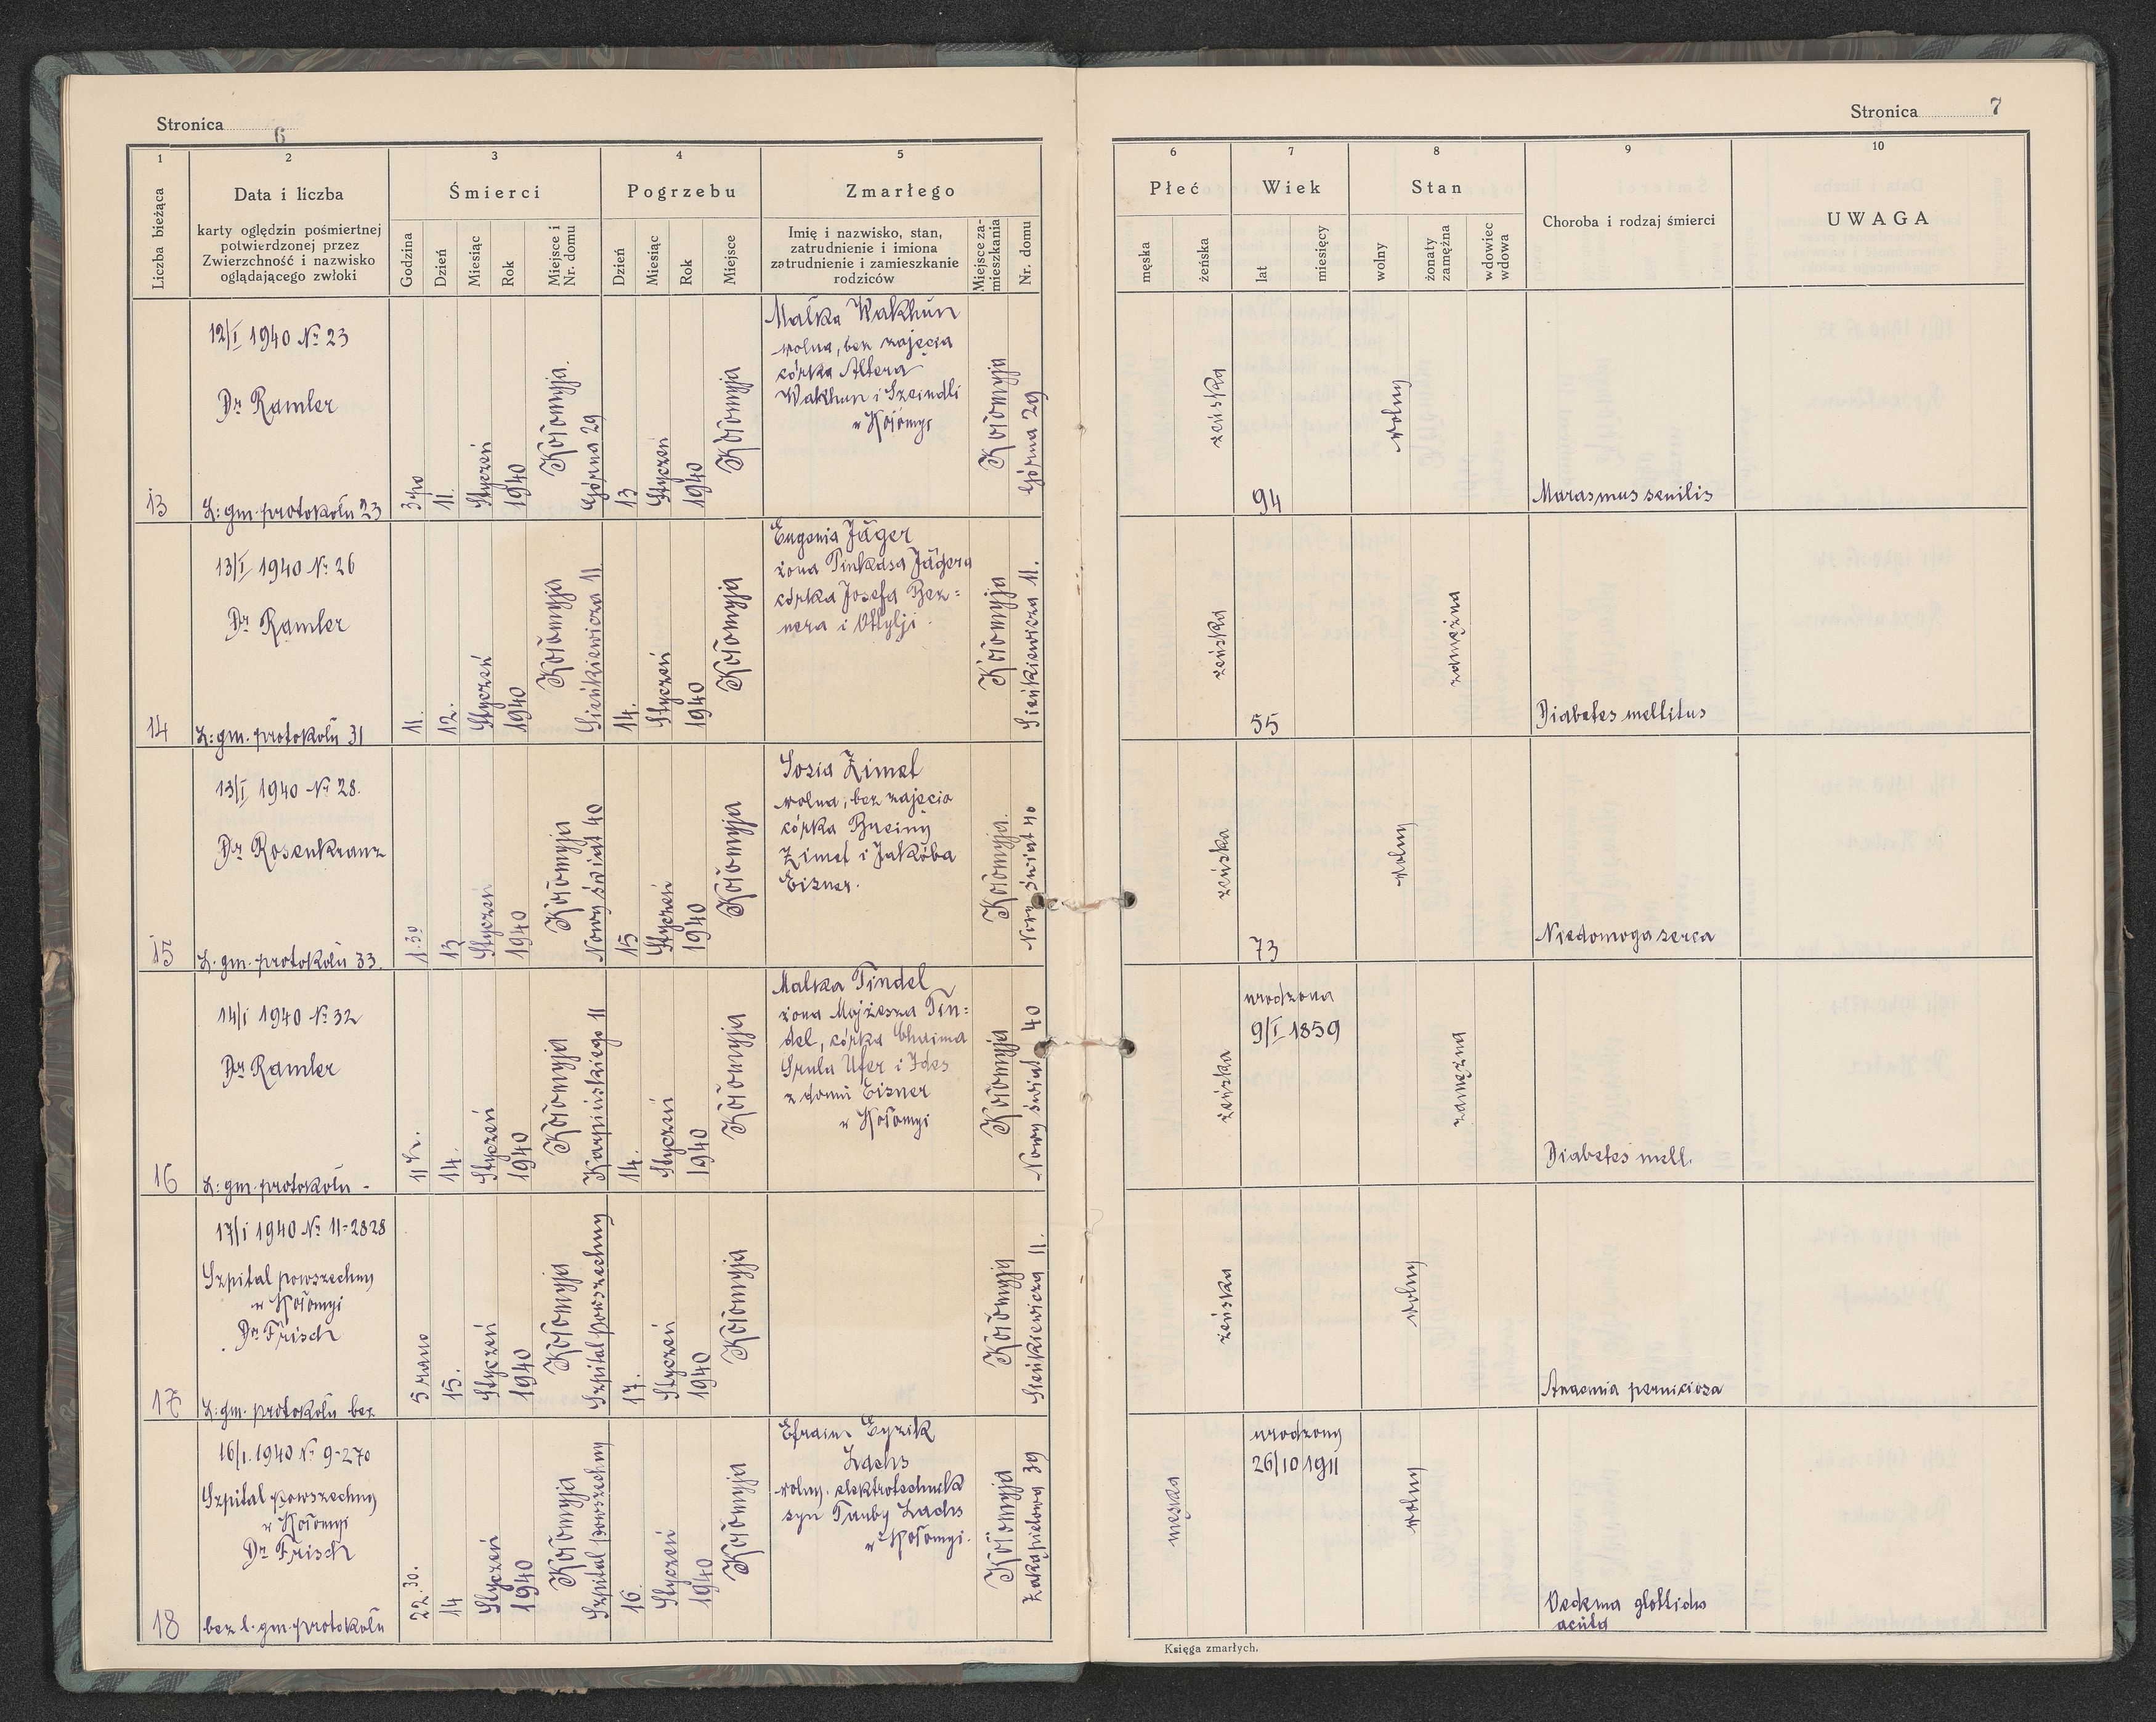 Stronica 6
1
2
3
4
5
Liczba bieżąca
Data i liczba
karty oględzin pośmiertnej
potwierdzonej przez
Zwierzchność i nazwisko
oglądającego zwłoki
Śmierci
Godzina
Dzień
Miesiąc
Rok
Miejsce i
Nr. domu
Pogrzebu
Dzień
Miesiąc
Rok
Miejsce
Zmarłego
Imię i nazwisko, stan,
zatrudnienie i imiona
zatrudnienie i zamieszkanie
rodziców
Miejsce za-
mieszkania
Nr. domu
13
12/I 1940 № 23
Dr Ramler
L: gm. protokołu 23
3 po
11.
Styczeń
1940
Kołomyja.
Górna 29
13
Styczeń
1940
Kołomyja
Malka Wakhun
wolna, bez zajęcia
córka Altera
Wakhun i Szeindli
w Kołomyi
Kołomyja
Górna 29
14
13/I 1940 № 26
Dr Ramler
L: gm. protokołu 31
11.
12.
Styczeń
1940
Kołomyja
Sieńkiewicza 11
14.
Styczeń
1940
Kołomyja
Eugenia Jäger
żona Pinkasa Jägera
córka Josefa Bez=
nera i Ottylji.
Kołomyja
Sieńkiewicza 11.
15
13/I 1940 № 28.
Dr Rosenkranz
L. gm. protokołu 33.
1.30
13
Styczeń
1940
Kołomyja
Nowy świat 40
15
Styczeń
1940
Kołomyja
Sosia Zimet
wolna, bez zajęcia
córka Bruciny
Zimet i Jakóba
Eisner.
Kołomyja.
Nowy świat 40
16
14/I 1940 № 32
Dr Ramler
L: gm. protokołu -
11 h.
14.
Styczeń
1940
Kołomyja
Karpińskiego 11
14.
Styczeń
1940
Kołomyja
Malka Tindel
żona Mojżesza Tin=
del, córka Chaima
Srula Ufer i Ides
z domu Eisner
w Kołomyi
Kołomyja
Nowy świat 40
17
17/I 1940 № 11-2828
Szpital powszechny
w Kołomyi
Dr Frisch
L: gm. protokołu bez
5 rano
15.
Styczeń
1940
Kołomyja
Szpital powszechny
17.
Styczeń
1940
Kołomyja
Kołomyja
Sieńkiewicza 11.
18
16/I. 1940 № 9-270
Szpital powszechny
w Kołomyi
Dr Frisch
bez l. gm. protokołu
22.30.
14
Styczeń
1940
Kołomyja
Szpital powszechny
16.
Styczeń
1940
Kołomyja
Efraim Eyzik
Lachs
wolny. elektrotechnik
syn Tauby Lachs
w Kołomyi.
Kołomyja
Zakąpielowa 39
Stronica 7
6
7
8
9
10
Płeć
męska
żeńska
Wiek
lat
miesięcy
Stan
wolny
żonaty
zamężna
wdowiec
wdowa
Choroba i rodzaj śmierci
UWAGA
żeńska
94
wolny
Marasmus senilis
żeńska
55
zamężna
Diabetes mellitus
żeńska
73
wolny
Niedomoga serca
żeńska
urodzona
9/I 1859
zamężna
Diabetes mell.
żeńska
wolny
Anaemia perniciosa
męska
urodzony
26/10 1911
wolny
Oedema glottidis
acuta
Księga zmarłych.